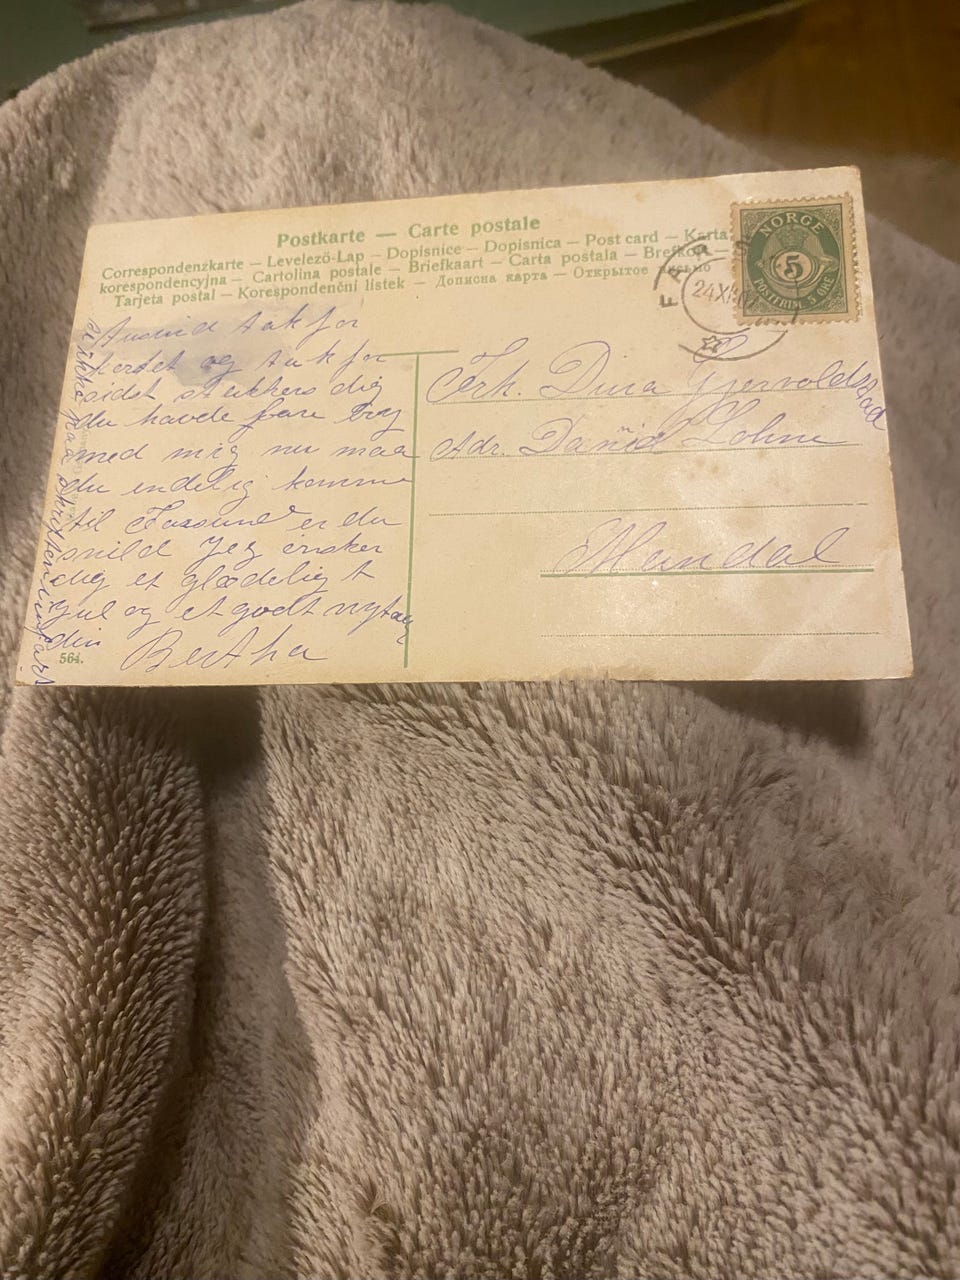 Postkarte — Carte postale
Correspondenzkarte — Levelező-Lap — Dopisnice — Dopisnica — Post card — Karta
korespondencyjna — Cartolina postale — Briefkaart — Carta postala — Brefkort —
Tarjeta postal — Korespondenční listek — Дописна карта — Открытое письмо
NORGE
5
POSTFRIM. 5 ØRE
24 XII
Tusind tak for
kortet og tak for
sidst stakkers dig
du havde bry
med mig nu maa
du endelig komme
til er du
snild Jeg ønsker
dig et glædeligt
jul og et godt nytaar
din
Bertha
ikke paa skriften
564.
Frk. Dina
Adr. Daniel Lohne
Mandal